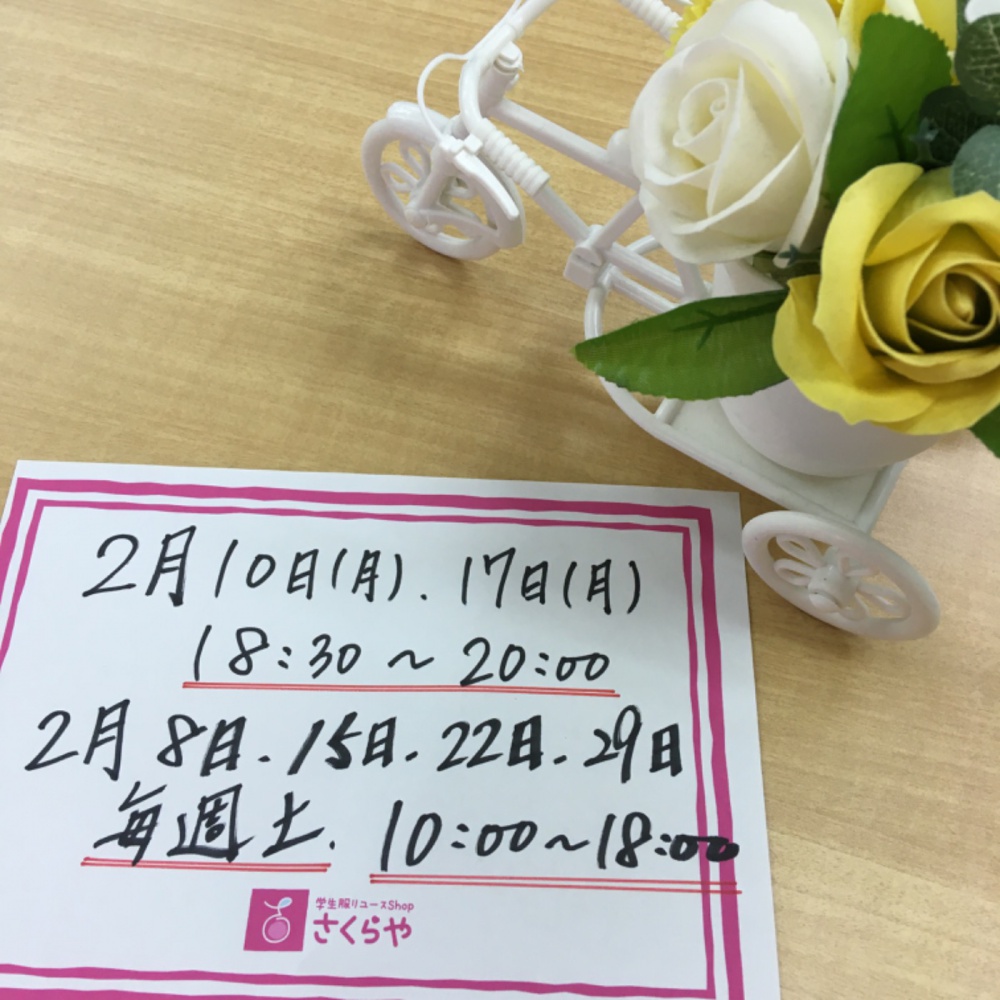 2月10日(月). 17日(月)
18:30～20:00
2月8日.15日.22日.29日
毎週土. 10:00～18:00
学生服リユースShop
さくらや